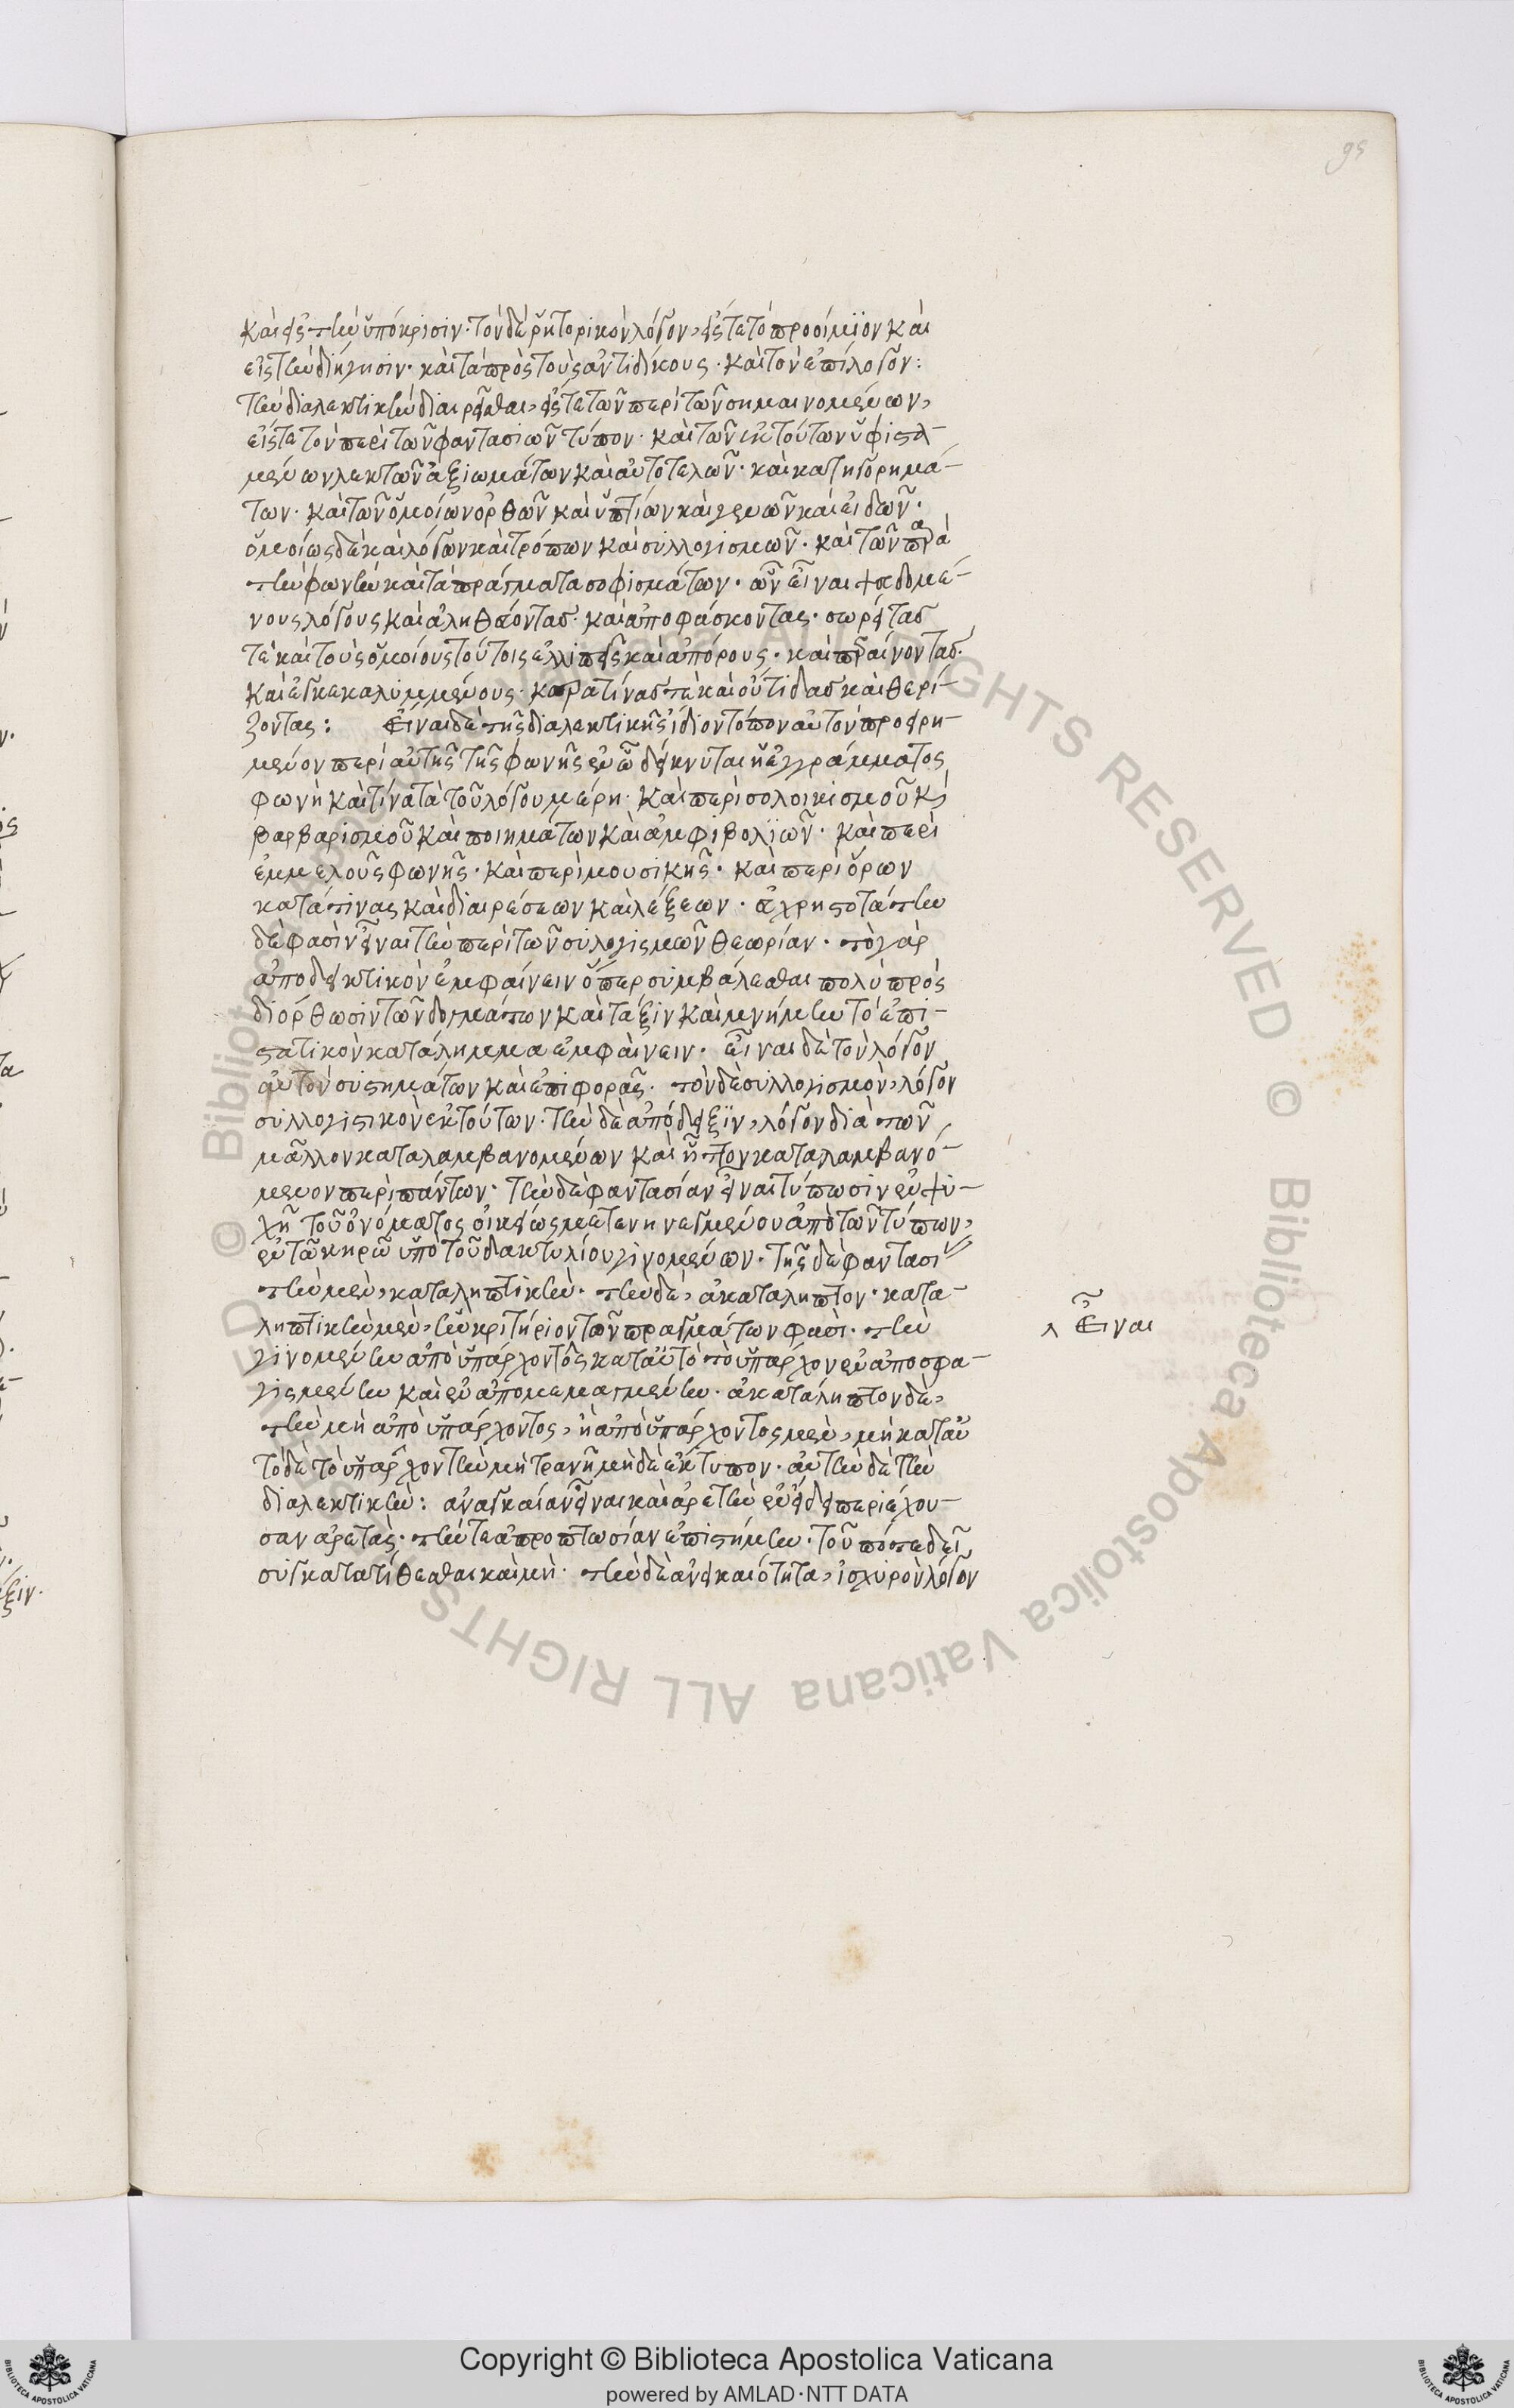 95
καὶ εἰς τὴν ὑπόκρισιν· τὸν δὲ ῥητορικὸν λόγον, εἴς τε τὸ προοίμιον καὶ
εἰς τὴν διήγησιν· καὶ τὰ πρὸς τοὺς ἀντιδίκους· καὶ τὸν ἐπίλογον:
τὴν διαλεκτικὴν διαιρεῖσθαι, εἴς τε τῶν περὶ τῶν σημαινομένων,
εἴς τε τὸν περὶ τῶν φαντασιῶν τύπον· καὶ τῶν ἐκ τούτων ὑφιστα-
μένων λεκτῶν ἀξιωμάτων καὶ αὐτοτελῶν· καὶ κατηγορημά-
των· καὶ τῶν ὁμοίων ὀρθῶν καὶ ὑπτίων καὶ γενῶν καὶ εἰδῶν·
ὁμοίως δὲ καὶ λόγων καὶ τρόπων καὶ συλλογισμῶν· καὶ τῶν παρὰ
τὴν φωνὴν καὶ τὰ πράγματα σοφισμάτων· ὧν εἶναι ψεδομέ-
νους λόγους καὶ ἀληθέοντας· καὶ ἀποφάσκοντας· σωρείτας
τὲ καὶ τοὺς ὁμοίους τούτοις ἐλλιπεῖς καὶ ἀπόρους· καὶ περαίνοντας·
καὶ ἐγκεκαλυμμένους· κερατίνας τὲ καὶ οὔτιδας καὶ θερί-
ζοντας: Εἶναι δὲ τῆς διαλεκτικῆς ἴδιον τόπον αὐτὸν προειρη-
μένον περὶ αὐτῆς τῆς φωνῆς ἐν ᾧ δείκνυται ἡ ἐγγράμματος
φωνὴ καὶ τίνα τὰ τοῦ λόγου μέρη· καὶ περὶ σολοικισμοῦ κ
βαρβαρισμοῦ καὶ ποιημάτων καὶ ἀμφιβολιῶν· καὶ περὶ
ἐμμελοῦς φωνῆς· καὶ περὶ μουσικῆς· καὶ περὶ ὅρων
κατά τινας καὶ διαιρέσεων καὶ λέξεων· ἀχρηστοτάτην
δὲ φασὶν εἶναι τὴν περὶ τῶν συλογισμῶν θεωρίαν· τὸ γὰρ
ἀποδεικτικὸν ἐμφαίνειν ὅπερ συμβάλεσθαι πολὺ πρὸς
διόρθωσιν τῶν δογμάτων καὶ τάξιν καὶ μνήμην τὸ ἐπι-
στατικὸν κατάλημμα ἐμφαίνειν· εἶναι δὲ τὸν λόγον
αὐτὸν συστημάτων καὶ ἐπιφορᾶς· τὸν δὲ συλλογισμὸν, λόγον
συλλογιστικὸν ἐκ τούτων· τὴν δὲ ἀπόδειξιν, λόγον διὰ τῶν
μᾶλλον καταλαμβανομένων καὶ ἧττον καταλαμβανό-
μενον περὶ πάντων· τὴν δὲ φαντασίαν εἶναι τύπωσιν ἐν ψυ-
χῇ τοῦ ὀνόματος οἰκείως μετενηνεγμένου ἀπὸ τῶν τύπων,
ἐν τῶ κηρῶ ὑπὸ τοῦ δακτυλίου γινομένων· τῆς δὲ φαντασί
τὴν μὲν, καταληπτικὴν· τὴν δὲ, ἀκατάληπτον· κατα-
ληπτικὴν μὲν, ἣν κριτήριον τῶν πραγμάτων φασὶ· τὴν
γινομένην ἀπὸ ὑπάρχοντος κατ' αὐτὸ τὸ ὑπάρχον ἐναποσφρα-
γισμένην καὶ ἐναπομεμαγμένην· ἀκατάληπτον δὲ,
τὴν μὴ ἀπὸ ὑπάρχοντος, ἢ ἀπὸ ὑπάρχοντος μὲν, μὴ κατ' αὐ
τὸ δὲ τὸ ὑπάρχον τὴν μὴ τρανῆ μὴ δὲ ἔκτυπον· αὐτὴν δὲ τὴν
διαλεκτικὴν: ἀναγκαίαν εἶναι καὶ ἀρετὴν ἐν εἴδει περιέχου-
σαν ἀρετάς· τήν τε ἀπροπτωσίαν ἐπιστήμην· τοῦ πότε δεῖ
συγκατατίθεσθαι καὶ μὴ· τὴν δὲ ἀνεικαιότητα, ἰσχυρὸν λόγον
λ Εἶναι
Copyright © Biblioteca Apostolica Vaticana
powered by AMLAD·NTT DATA
© Biblioteca Apostolica Vaticana ALL RIGHTS RESERVED